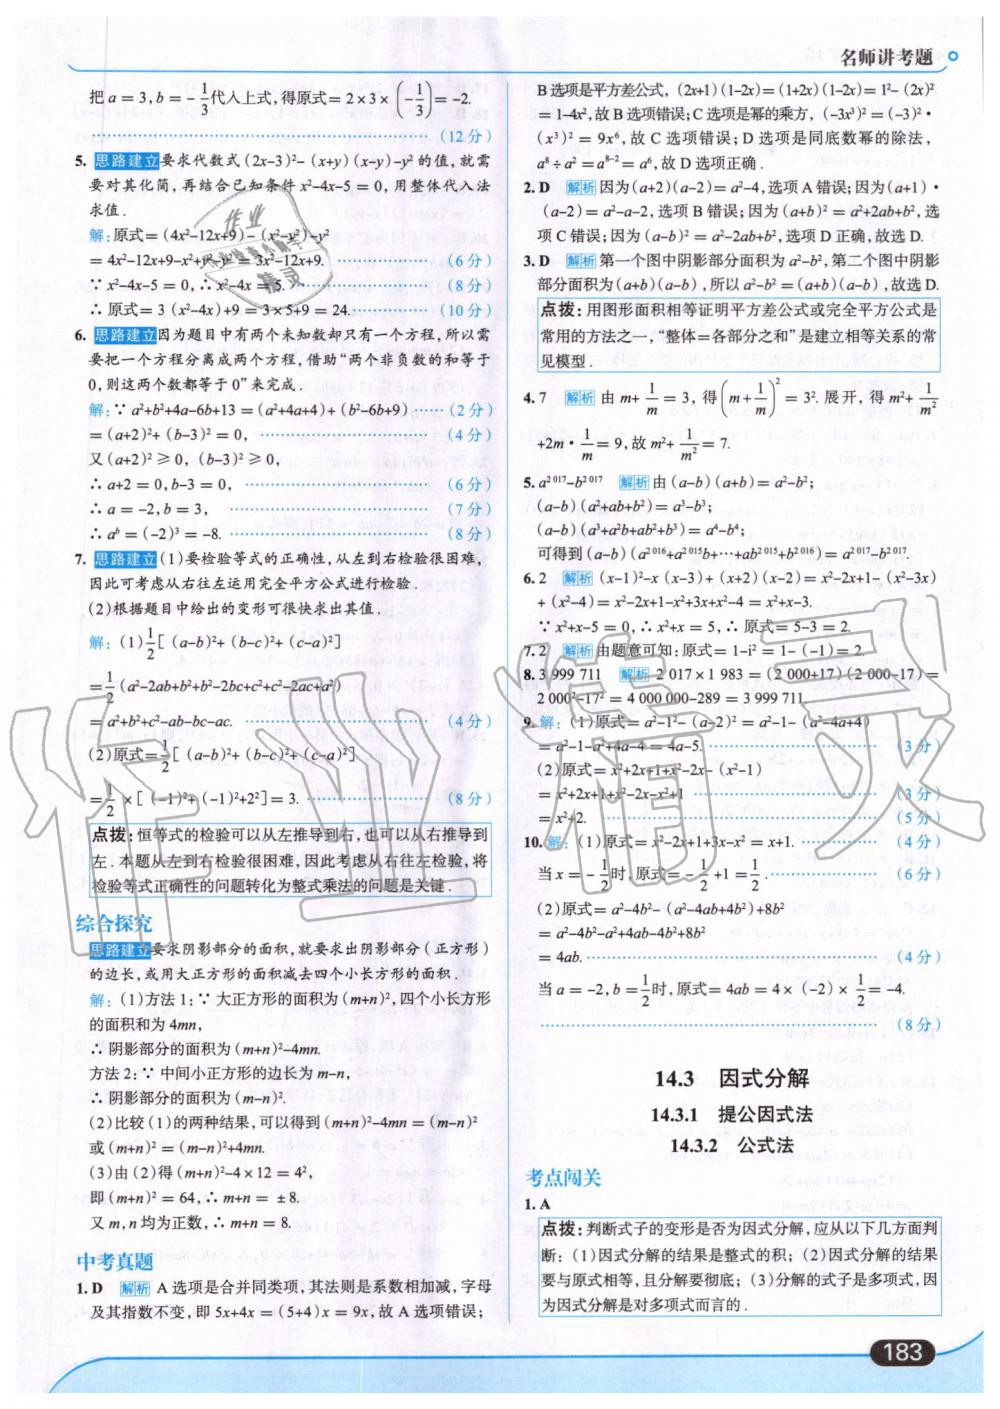 名师讲考题
把 a = 3, b = -1/3 代入上式, 得原式 = 2×3×(-1/3) = -2.
(12 分)
5. 思路建立 要求代数式 (2x-3)²-(x+y)(x-y)-y² 的值, 就需
要对其化简, 再结合已知条件 x²-4x-5 = 0, 用整体代入法
求值.
解: 原式 = (4x²-12x+9)-(x²-y²)-y²
= 4x²-12x+9-x²+y²-y² = 3x²-12x+9. (6 分)
∵ x²-4x-5 = 0, ∴ x²-4x = 5. (8 分)
∴ 原式 = 3(x²-4x)+9 = 3×5+9 = 24. (10 分)
6. 思路建立 因为题目中有两个未知数却只有一个方程, 所以需
要把一个方程分离成两个方程, 借助“两个非负数的和等于
0, 则这两个数都等于 0”来完成.
解: ∵ a²+b²+4a-6b+13 = (a²+4a+4)+(b²-6b+9) (2 分)
= (a+2)²+(b-3)² = 0, (4 分)
又 (a+2)² ≥ 0, (b-3)² ≥ 0,
∴ a+2 = 0, b-3 = 0, (6 分)
∴ a = -2, b = 3, (7 分)
∴ aᵇ = (-2)³ = -8. (8 分)
7. 思路建立 (1) 要检验等式的正确性, 从左到右检验很困难,
因此可考虑从右往左运用完全平方公式进行检验.
(2) 根据题目中给出的变形可很快求出其值.
解: (1) 1/2[(a-b)²+(b-c)²+(c-a)²]
= 1/2(a²-2ab+b²+b²-2bc+c²+c²-2ac+a²)
= a²+b²+c²-ab-bc-ac. (4 分)
(2) 原式 = 1/2[(a-b)²+(b-c)²+(c-a)²]
= 1/2×[(-1)²+(-1)²+2²] = 3. (8 分)
点拨: 恒等式的检验可以从左推导到右, 也可以从右推导到
左. 本题从左到右检验很困难, 因此考虑从右往左检验, 将
检验等式正确性的问题转化为整式乘法的问题是关键.
综合探究
思路建立 要求阴影部分的面积, 就要求出阴影部分 (正方形)
的边长, 或用大正方形的面积减去四个小长方形的面积.
解: (1) 方法 1: ∵ 大正方形的面积为 (m+n)², 四个小长方形
的面积和为 4mn,
∴ 阴影部分的面积为 (m+n)²-4mn.
方法 2: ∵ 中间小正方形的边长为 m-n,
∴ 阴影部分的面积为 (m-n)².
(2) 比较 (1) 的两种结果, 可以得到 (m+n)²-4mn = (m-n)²
或 (m+n)² = (m-n)²+4mn.
(3) 由 (2) 得 (m+n)²-4×12 = 4²,
即 (m+n)² = 64, ∴ m+n = ±8.
又 m, n 均为正数, ∴ m+n = 8.
中考真题
1. D 解析 A 选项是合并同类项, 其法则是系数相加减, 字母
及其指数不变, 即 5x+4x = (5+4)x = 9x, 故 A 选项错误;
B 选项是平方差公式, (2x+1)(1-2x) = (1+2x)(1-2x) = 1²-(2x)²
= 1-4x², 故 B 选项错误; C 选项是幂的乘方, (-3x³)² = (-3)²·
(x³)² = 9x⁶, 故 C 选项错误; D 选项是同底数幂的除法,
a⁸÷a² = a⁸⁻² = a⁶, 故 D 选项正确.
2. D 解析 因为 (a+2)(a-2) = a²-4, 选项 A 错误; 因为 (a+1)·
(a-2) = a²-a-2, 选项 B 错误; 因为 (a+b)² = a²+2ab+b², 选
项 C 错误; 因为 (a-b)² = a²-2ab+b², 选项 D 正确, 故选 D.
3. D 解析 第一个图中阴影部分面积为 a²-b², 第二个图中阴影
部分面积为 (a+b)(a-b), 所以 a²-b² = (a+b)(a-b), 故选 D.
点拨: 用图形面积相等证明平方差公式或完全平方公式是
常用的方法之一, “整体=各部分之和”是建立相等关系的常
见模型.
4. 7 解析 由 m+1/m = 3, 得 (m+1/m)² = 3². 展开, 得 m²+1/m²
+2m·1/m = 9, 故 m²+1/m² = 7.
5. a²⁰¹⁷-b²⁰¹⁷ 解析 由 (a-b)(a+b) = a²-b²;
(a-b)(a²+ab+b²) = a³-b³;
(a-b)(a³+a²b+ab²+b³) = a⁴-b⁴;
可得到 (a-b)(a²⁰¹⁶+a²⁰¹⁵b+···+ab²⁰¹⁵+b²⁰¹⁶) = a²⁰¹⁷-b²⁰¹⁷.
6. 2 解析 (x-1)²-x(x-3)+(x+2)(x-2) = x²-2x+1-(x²-3x)
+(x²-4) = x²-2x+1-x²+3x+x²-4 = x²+x-3.
∵ x²+x-5 = 0, ∴ x²+x = 5, ∴ 原式 = 5-3 = 2.
7. 2 解析 由题意可知: 原式 = 1-i² = 1-(-1) = 2.
8. 3 999 711 解析 2 017×1 983 = (2 000+17)(2 000-17) =
2 000²-17² = 4 000 000-289 = 3 999 711.
9. 解: (1) 原式 = a²-1²-(a-2)² = a²-1-(a²-4a+4)
= a²-1-a²+4a-4 = 4a-5. (3 分)
(2) 原式 = x²+2x+1+x²-2x-(x²-1)
= x²+2x+1+x²-2x-x²+1 (3 分)
= x²+2. (5 分)
10. 解: (1) 原式 = x²-2x+1+3x-x² = x+1. (4 分)
当 x = -1/2 时, 原式 = -1/2+1 = 1/2. (6 分)
(2) 原式 = a²-4b²-(a²-4ab+4b²)+8b²
= a²-4b²-a²+4ab-4b²+8b²
= 4ab. (4 分)
当 a = -2, b = 1/2 时, 原式 = 4ab = 4×(-2)×1/2 = -4.
(8 分)
14.3 因式分解
14.3.1 提公因式法
14.3.2 公式法
考点闯关
1. A
点拨: 判断式子的变形是否为因式分解, 应从以下几方面判
断: (1) 因式分解的结果是整式的积; (2) 因式分解的结果
要与原式相等, 且分解要彻底; (3) 分解的式子是多项式, 因
为因式分解是对多项式而言的.
183
作业精灵